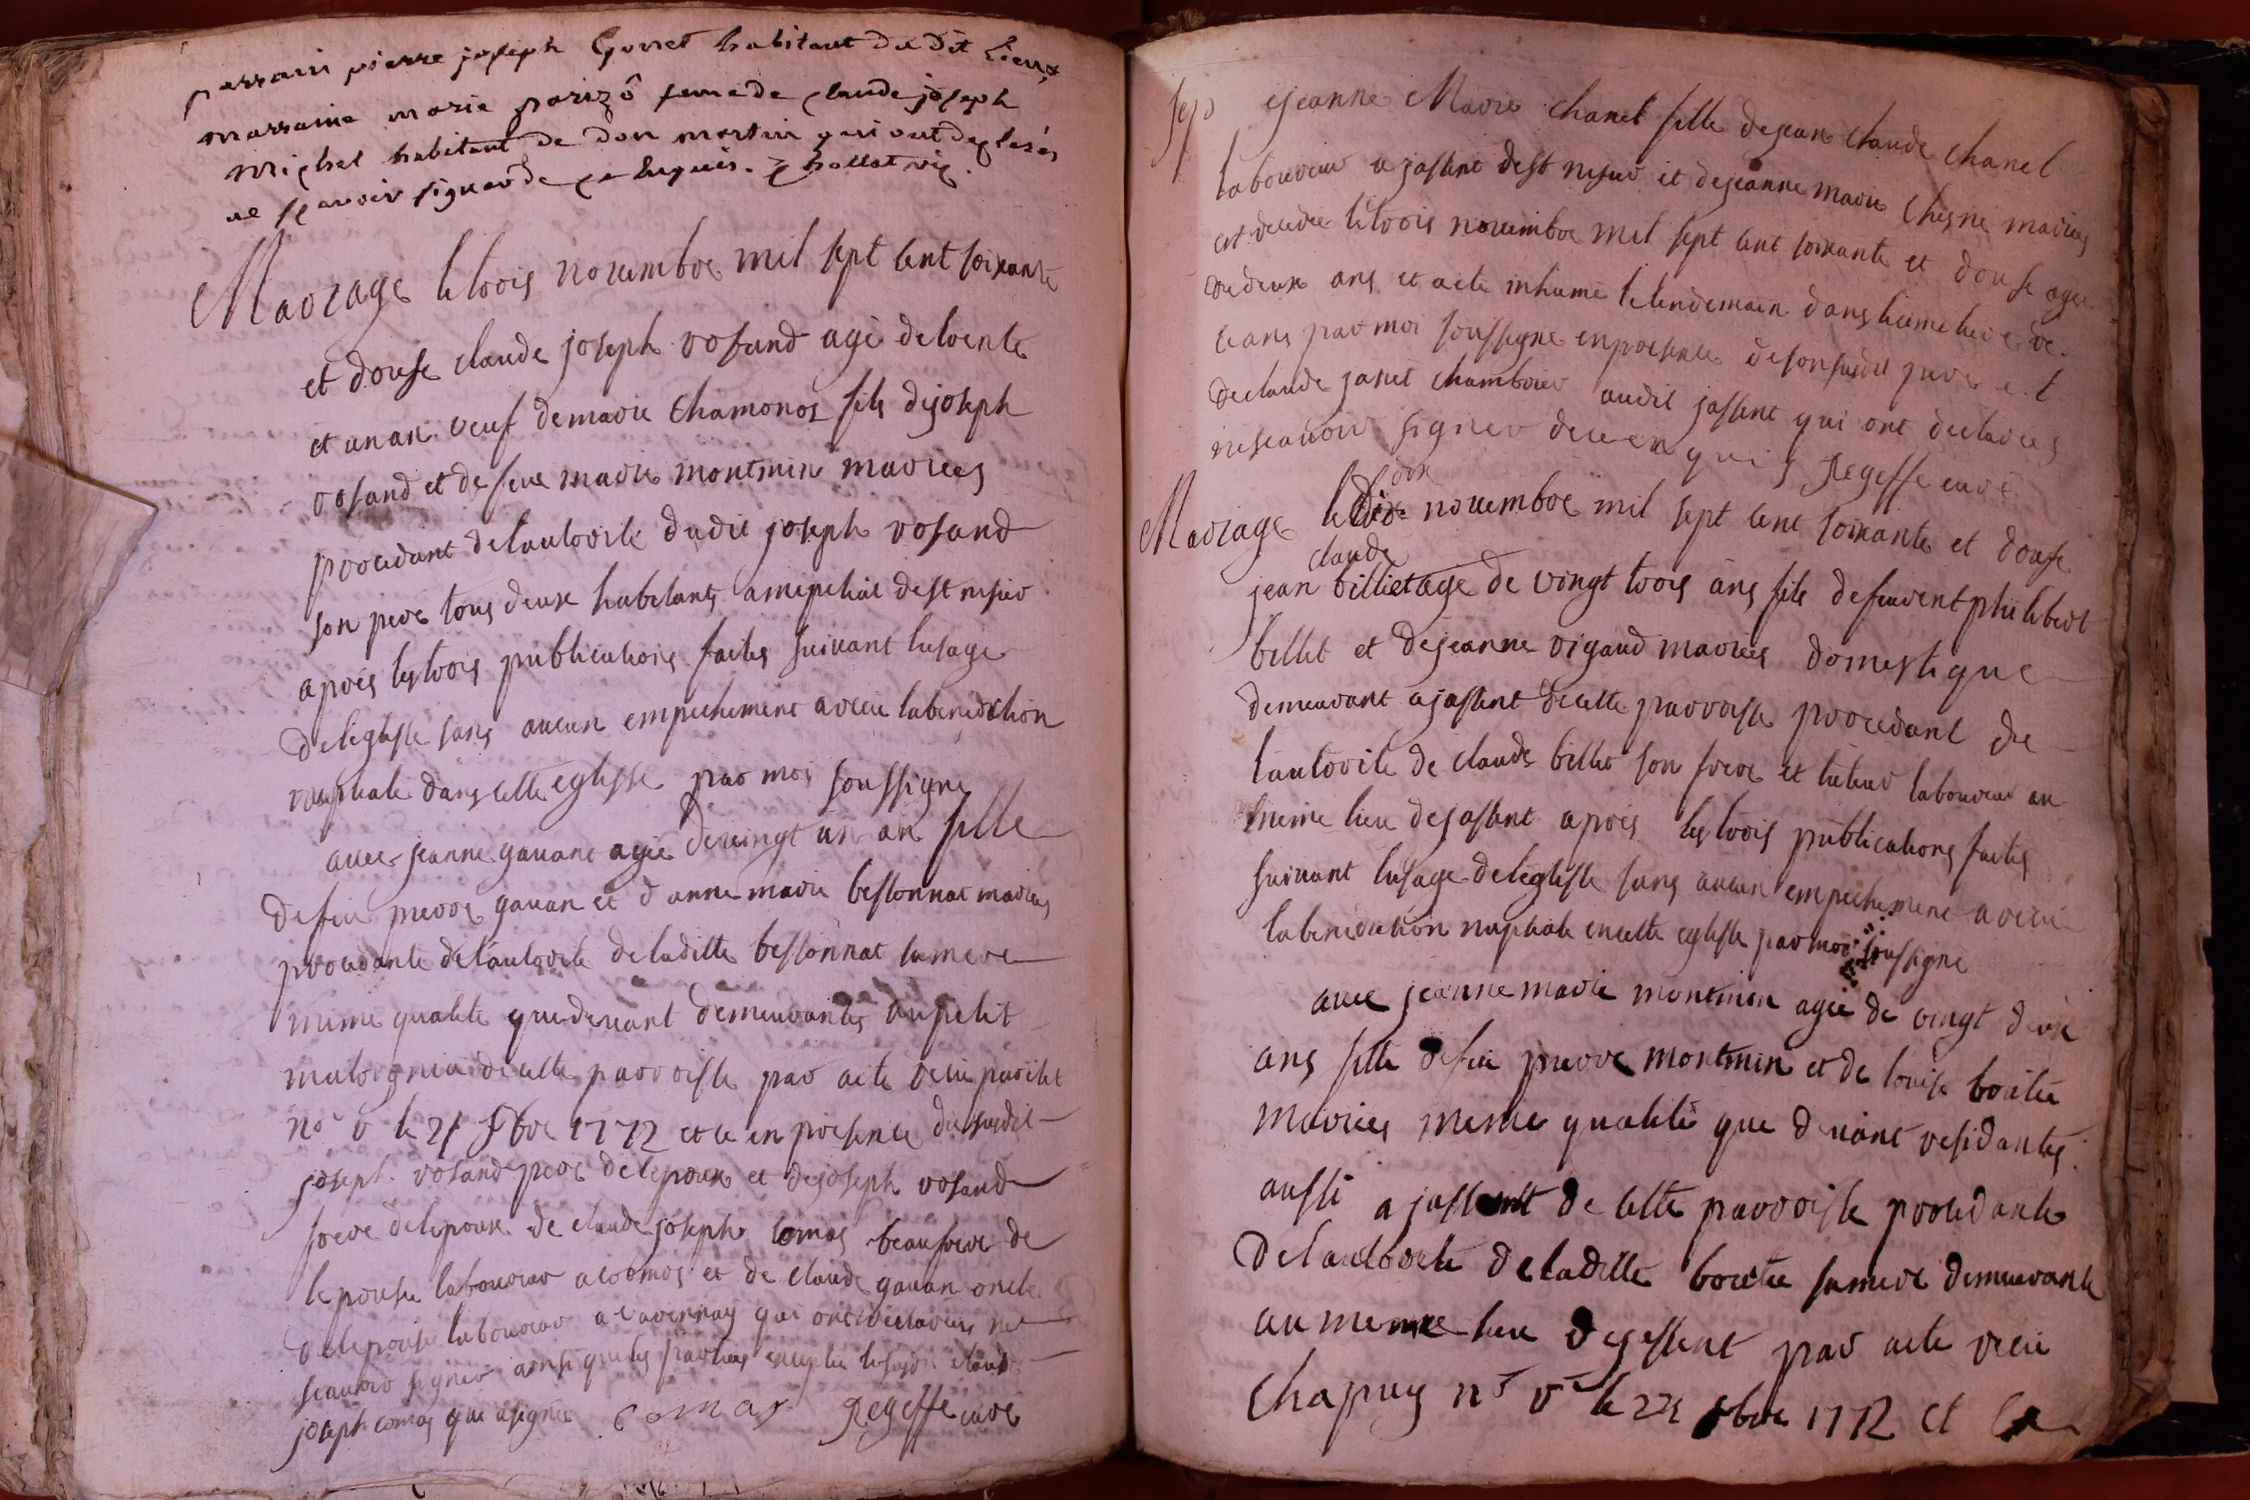 parrain pierre joseph Gonet habitant du dit Lieux
marraine marie parizô feme de claude joseph
Michel habitant de don martin qui ont declarés
ne sçavoir signer de ce Enquis.
Mariage le trois novembre mil sept cent soixante
et douse claude joseph rosand agé de trente
et un an veuf de marie Chamonoz fils de joseph
rosand et de feue marie montmin mariees
procedant de lautorité dudit joseph rosand
son pere tous deux habitants a de st nisier
apres les trois publications faites suivant lusage
de leglisse sans aucun empechement a recu la benediction
nuptiale dans cette eglisse par moi soussigné
avec jeanne gavant agee de vingt un an fille
de feu pierre gavan et d anne marie bessonnat mariees
procedante de lautorité de ladille bessonnat sa mere
meme qualite que devant demeurantes au petit
de cette parroisse par acte recu
no r le 21 1772 et ce en presence du susdit
joseph rosand pere de lepoux et de joseph rosand
frere de lepoux de claude joseph comas beaufrere de
lepouse laboureur a cormos et de claude gavan oncle
de lepouse laboureur a qui ont declarees ne
scauoir signer ainsi que les parties exceptée le susdit claude
joseph comas qui a signe comas Regeffe curé
jeanne Marie Chanel fille de jean claude chanel
laboureur a jassent de st nisier et de jeanne marie chesne mariees
est decedee le trois novembre mil sept cent soixante et douse agee
de deux ans et a ete inhumé le lendemain dans licimetiere de
ceans par moi soussigne en presence de son susdit pere et
de claude janet chambrier audit jassent qui ont declarees
ne scauoir signer de ce enquis Regeffe curé
dix
Mariage le novembre mil sept cent soixante et douse
claude
jean billiet age de vingt trois ans fils de philibert
billet et de jeanne rigaud mariees domestique
demeurant a jassent de cette parroisse procedant de
lautorite de claude billet son frere et tuteur laboureur au
meme lieu de jassent apres les trois publications faites
suivant lusage de leglisse sans aucun empechement a recu
la benediction nuptiale en cette eglisse par moi soussigne
avec jeanne marie montmin agee de vingt deux
ans fille de feu pierre montmin et de louise
mariees meme qualite que devant residantes
aussi a jassent de cette parroisse procedante
de lautorité de ladille sa mere demeurante
au meme lieu de jessent par acte recu
Chapuy nre re le 22 1772 et ce